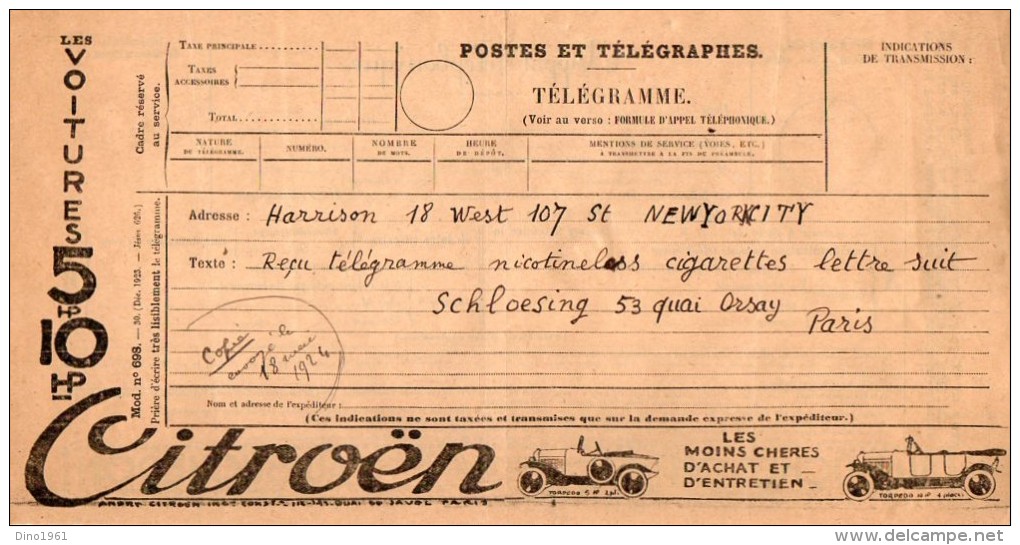 LES
VOITURES
5
HP
10
HP
Citroën
Cadre réservé
au service.
TAXE PRINCIPALE
TAXES
ACCESSOIRES
TOTAL
POSTES ET TÉLÉGRAPHES.
TÉLÉGRAMME.
(Voir au verso : FORMULE D'APPEL TÉLÉPHONIQUE.)
INDICATIONS
DE TRANSMISSION :
NATURE
DU TÉLÉGRAMME.
NUMÉRO.
NOMBRE
DE MOTS.
HEURE
DE DÉPÔT.
MENTIONS DE SERVICE (VOIES, ETC.)
À TRANSMETTRE À LA FIN DU PRÉAMBULE.
Mod. nº 698. — 30. (Déc. 1923. —
Prière d'écrire très lisiblement le télégramme.
Adresse : Harrison 18 West 107 St NEWYORKCITY
Texte : Reçu télégramme nicotineless cigarettes lettre suit
Schloesing 53 quai Orsay
Paris
Copie
envoyé le
18 mai
1924
Nom et adresse de l'expéditeur :
(Ces indications ne sont taxées et transmises que sur la demande expresse de l'expéditeur.)
LES
MOINS CHERES
D'ACHAT ET
D'ENTRETIEN
TORPEDO 5 HP 2 pl.
TORPEDO 10 HP 4
ANDRÉ CITROËN QUAI DE JAVEL PARIS
Dino1961
delcampe.net